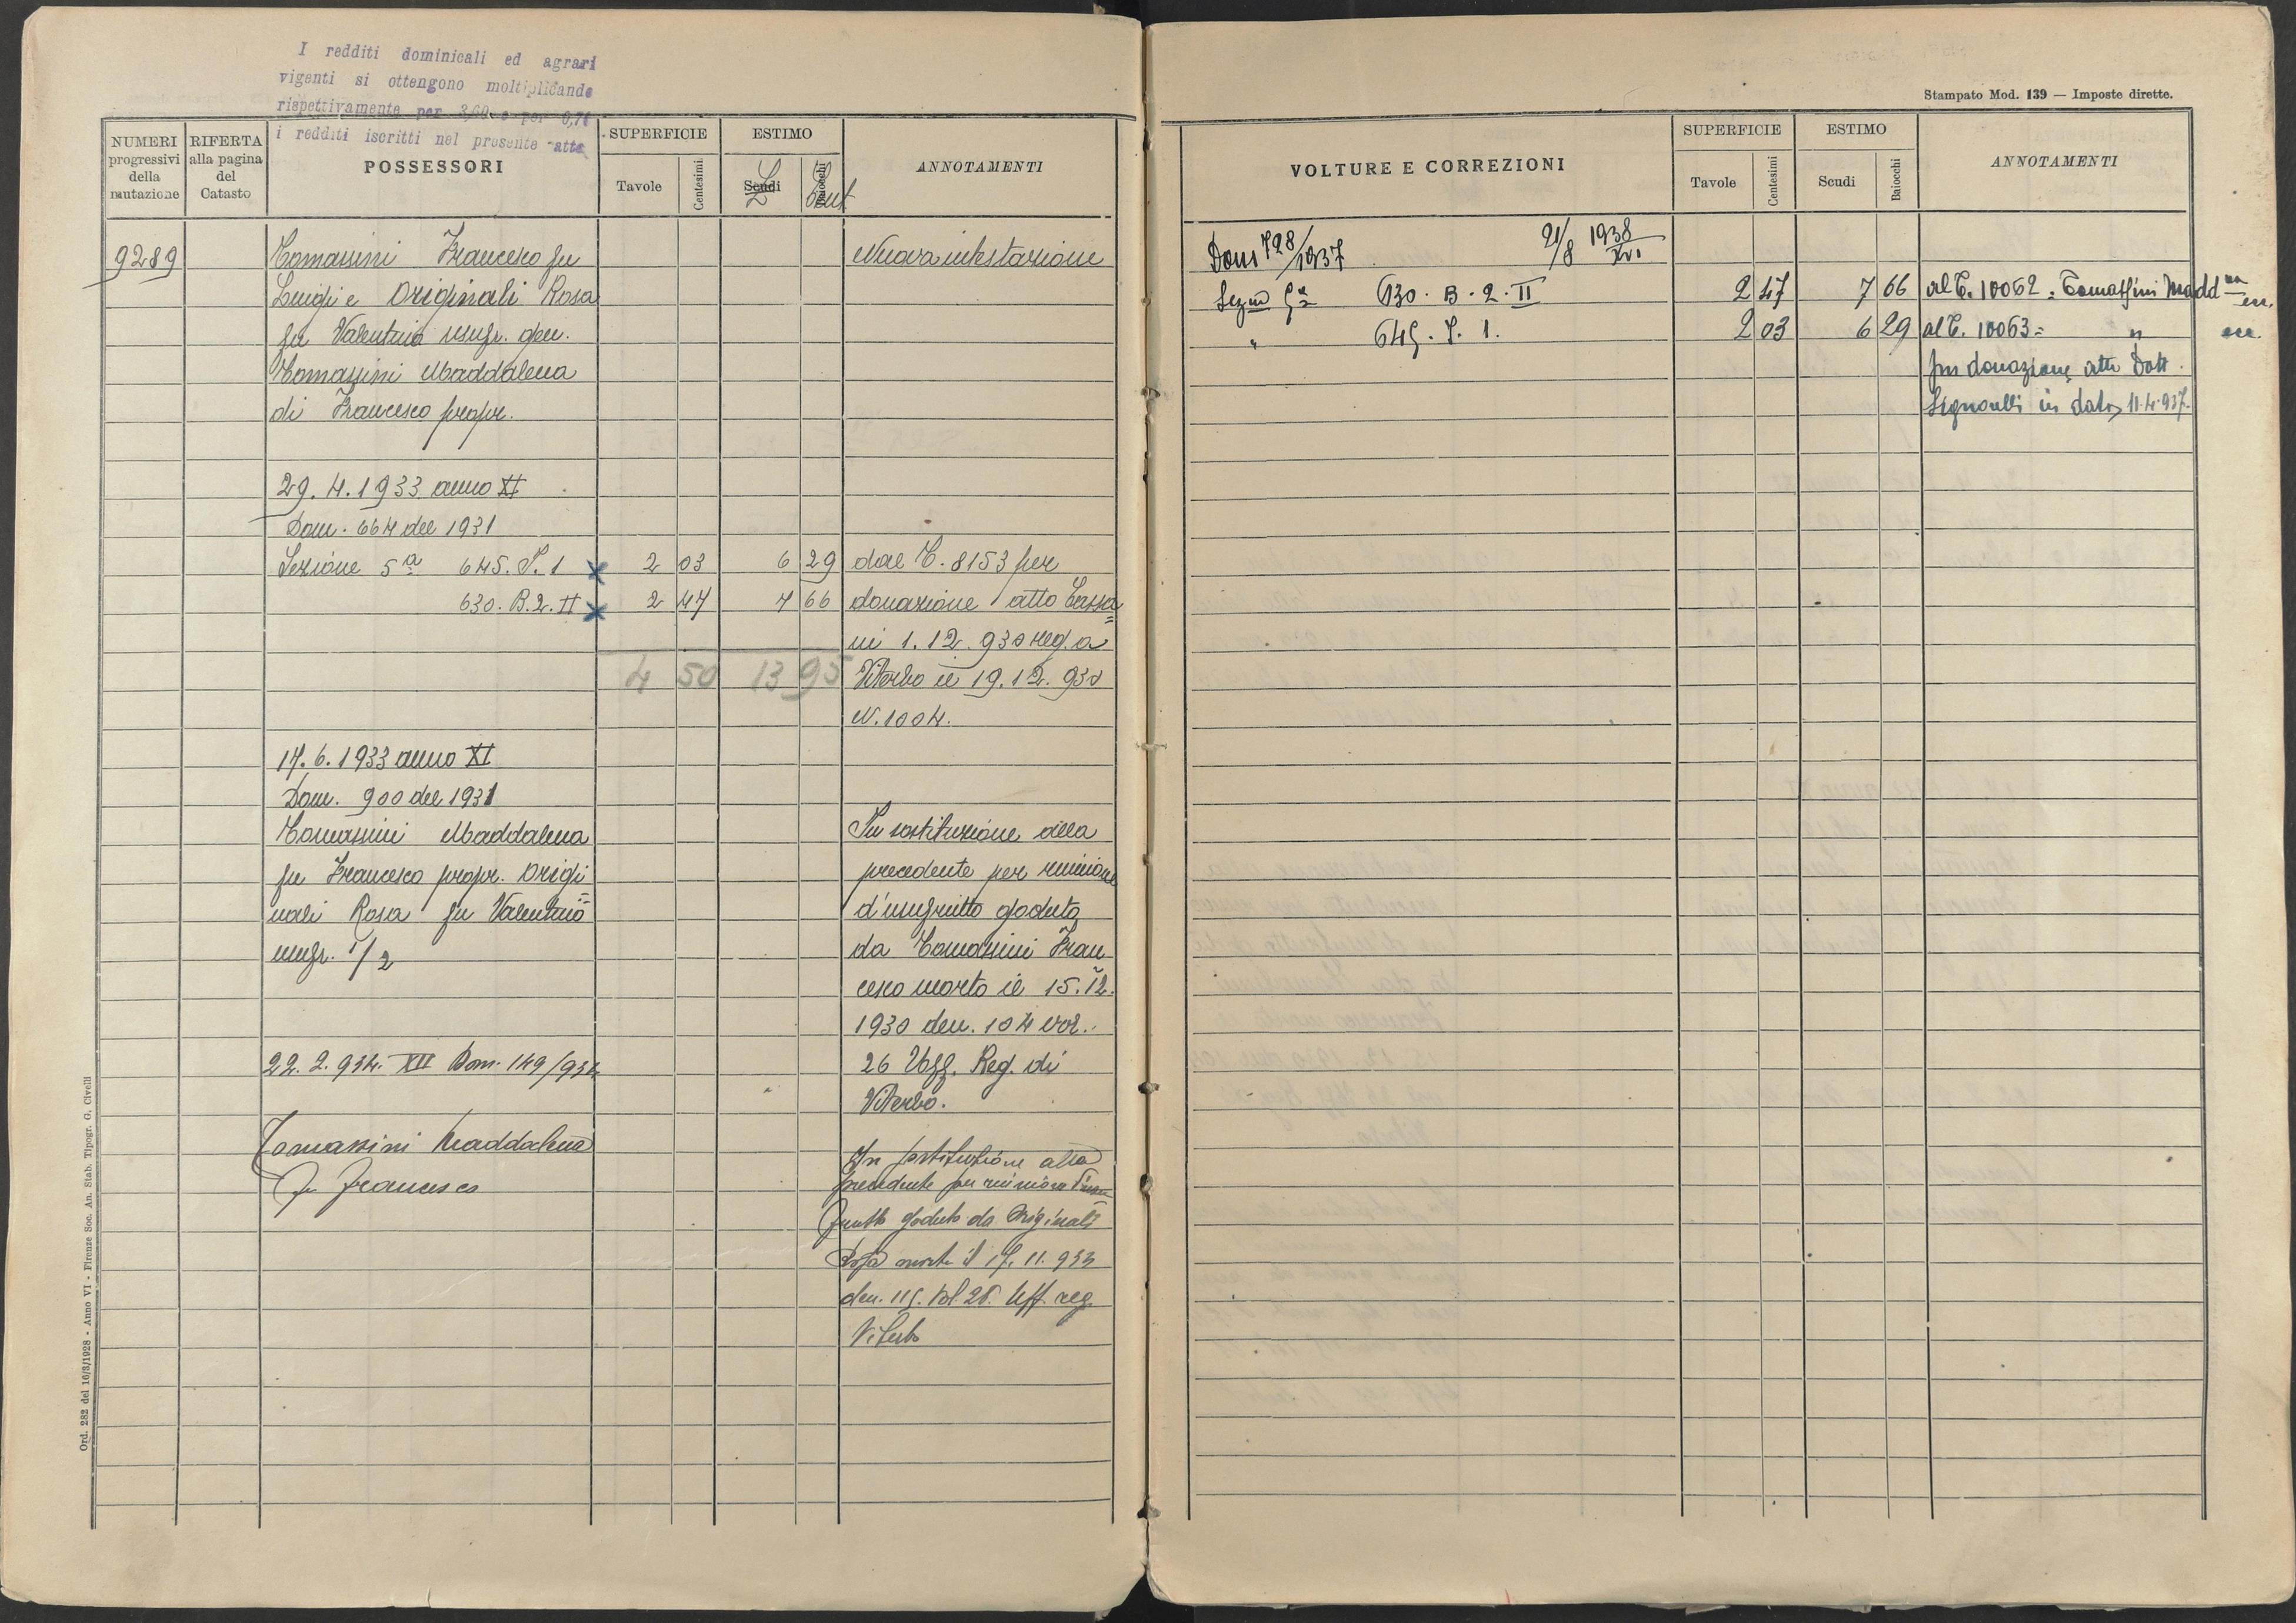 I redditi dominicali ed agrari
vigenti si ottengono moltiplicando
rispettivamente per 3,60 e per 0,71
i redditi iscritti nel presente atto
NUMERI progressivi della mutazione
RIFERTA alla pagina del Catasto
POSSESSORI
SUPERFICIE
Tavole
Centesimi
ESTIMO
Scudi
Baiocchi
L
Cent
ANNOTAMENTI
9289
Tomassini Francesco fu
Luigi e Originali Rosa
fu Valentino usufr. gen.
Tomassini Maddalena
di Francesco propr.
Nuova intestazione
29. 4. 1933 anno XI
Dom. 664 del 1931
Sezione 5a 645. S. 1 2 03 6 29 dal T. 8153 per
630. B. 2. II 2 47 7 66 donazione atto Cassa=
ni 1. 12. 930 reg. a
4 50 13 95 Viterbo il 19. 12. 930
N. 1004.
17. 6. 1933 anno XI
Dom. 900 del 1931
Tomassini Maddalena
fu Francesco propr. Origi=
nali Rosa fu Valentino
usufr. 1/2
In sostituzione della
precedente per riunione
d'usufrutto goduto
da Tomassini Fran
cesco morto il 15. 12.
1930 den. 104 vol.
26 Uff. Reg. di
Viterbo.
22. 2. 934. XII Dom. 149/934
Tomassini Maddalena
fu Francesco
In sostituzione alla
precedente per riunione d'usu
frutto goduto da Originali
Rosa morta il 17. 11. 933
den. 115. Vol. 28. Uff. reg.
Viterbo
Ord. 282 del 16/3/1928 - Anno VI - Firenze Soc. An. Stab. Tipogr. G. Civelli
Stampato Mod. 139 — Imposte dirette.
VOLTURE E CORREZIONI
SUPERFICIE
Tavole
Centesimi
ESTIMO
Scudi
Baiocchi
ANNOTAMENTI
Dom 728/1937 21/8 1938 XVI
Sezne 5a 630. B. 2. II 2 47 7 66 al T. 10062 = Tomassini Madd na
" 645. S. 1. 2 03 6 29 al T. 10063 = "
per donazione atto Dott.
Signorelli in data 11.4.937.